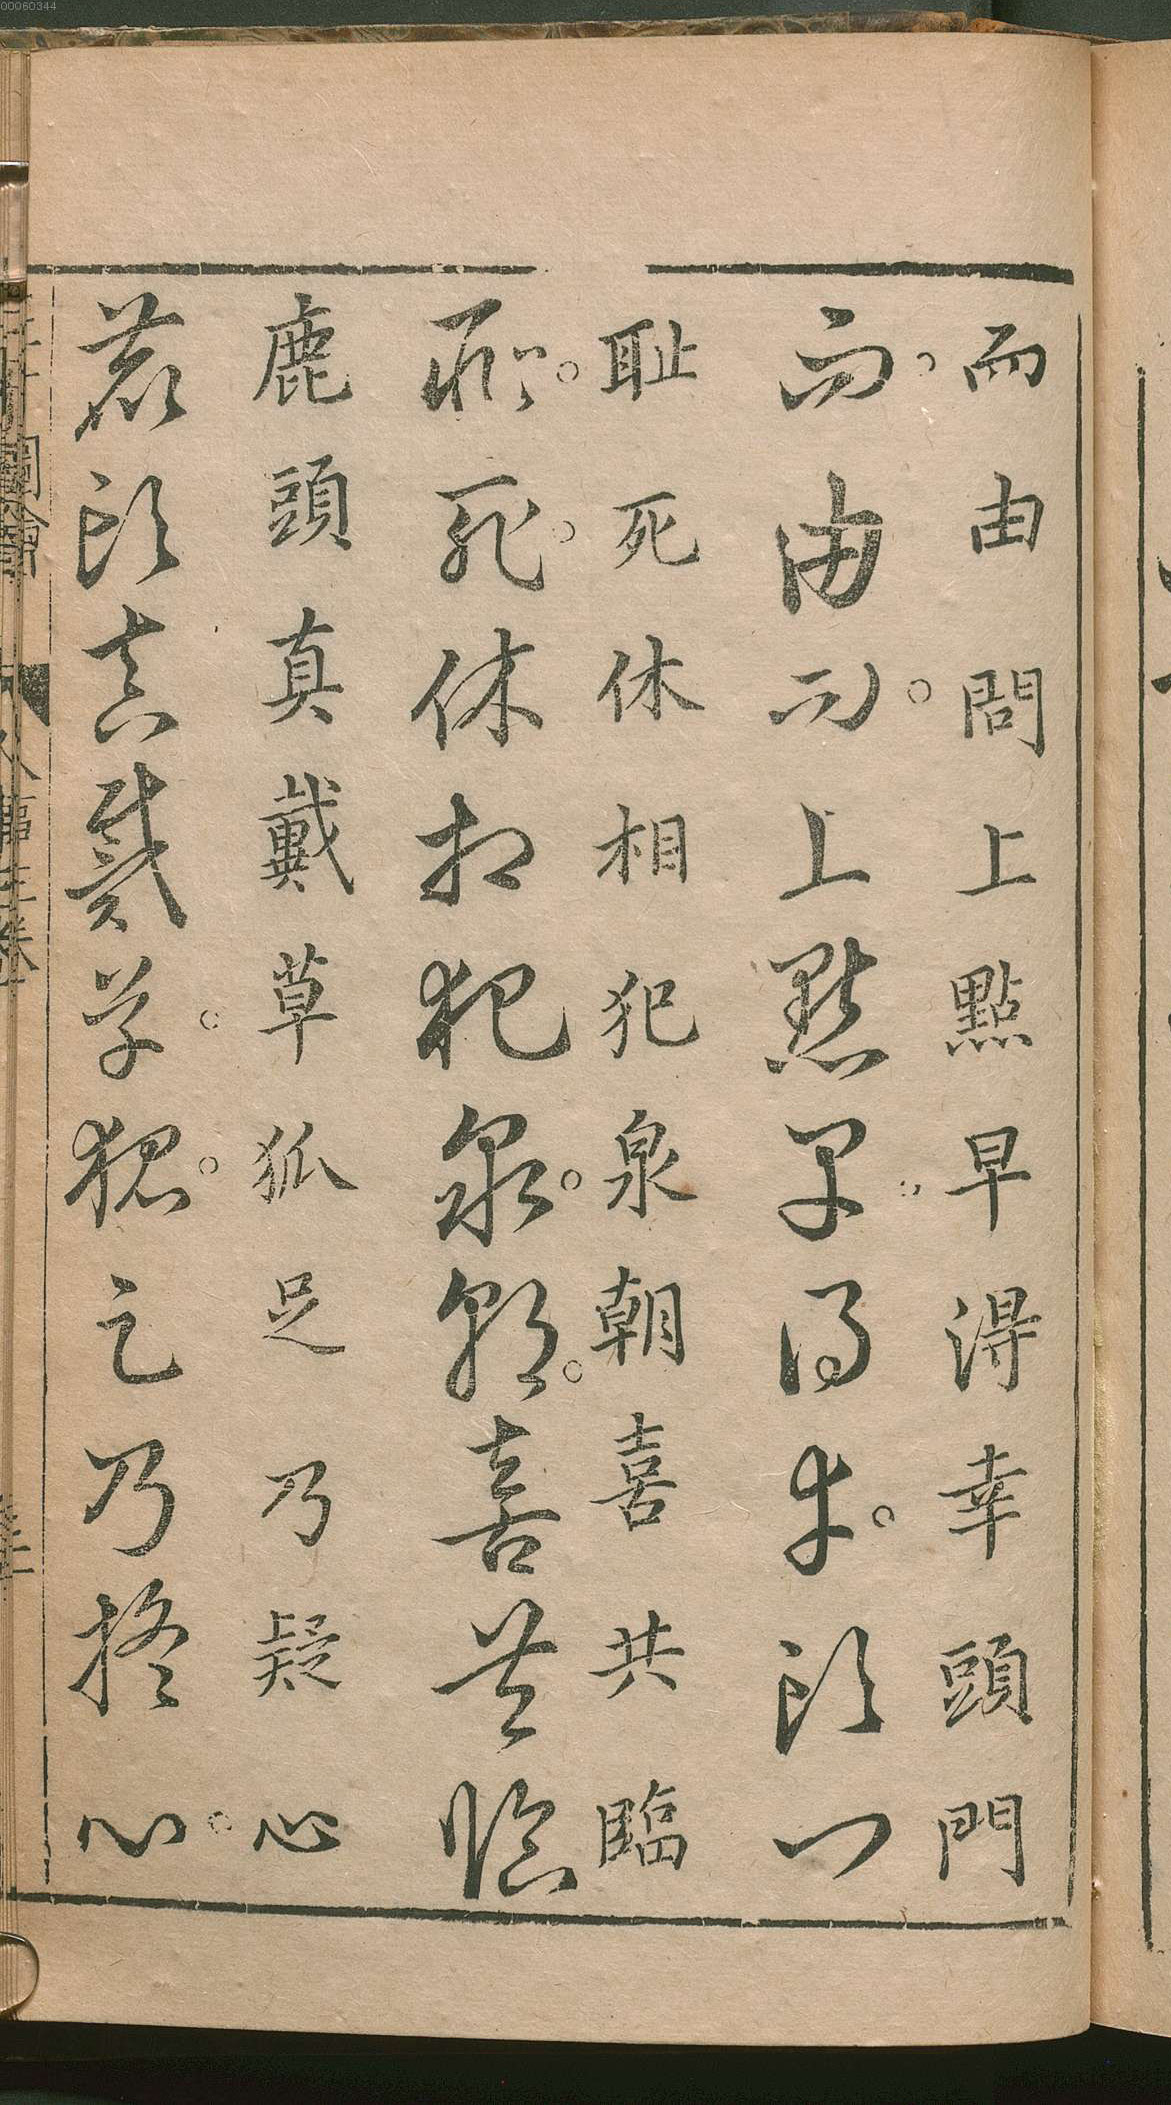 00060344
而由問上點早得幸頭門
而由問上點早得幸頭門
耻死休相犯泉朝喜共臨
耻死休相犯泉朝喜共臨
鹿頭真戴草狐足乃疑心
鹿頭真戴草狐足乃疑心